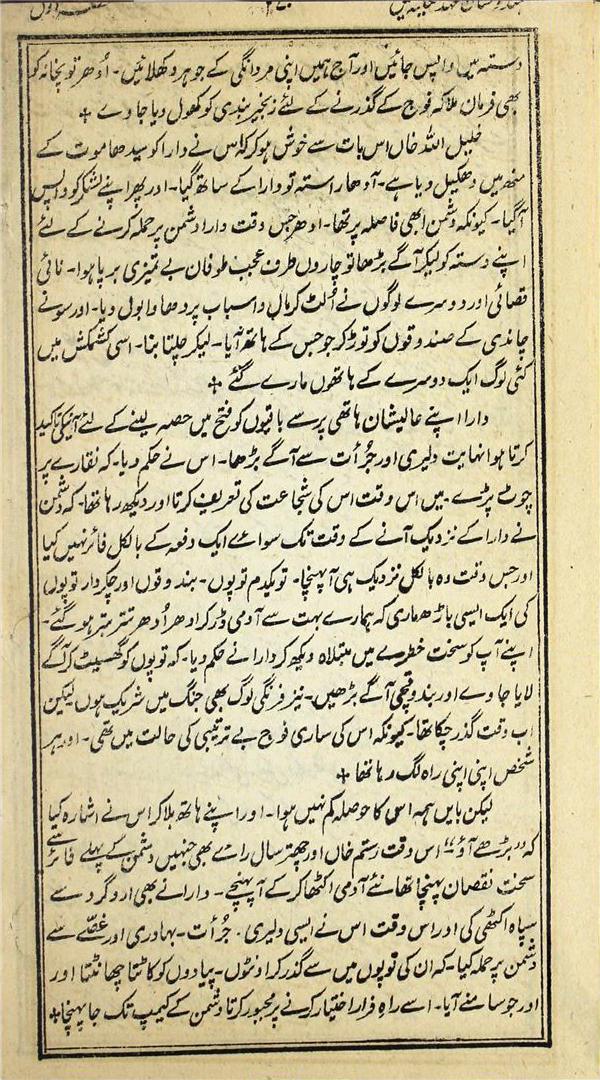 دستہ میں واپس جائیں اور آج ہمیں اپنی مردانگی کے جوہر دکھلائیں۔ اُدھر توپخانہ کو
بھی فرمان ملا کہ فوج کے گذرنے کے لئے زنجیر بندی کو کھول دیا جاوے ✢
خلیل اللہ خاں اس بات سے خوش ہو کر کہ اُس نے دارا کو سیدھا موت کے
منھ میں دھکیل دیا ہے۔ آدھا راستہ تو دارا کے ساتھ گیا۔ اور پھر اپنے لشکر کو واپس
آگیا۔ کیونکہ دشمن ابھی فاصلہ پر تھا۔ ادھر جس وقت دارا دشمن پر حملہ کرنے کے لئے
اپنے دستہ کو لیکر آگے بڑھا تو چاروں طرف عجب طوفان بے تمیزی برپا ہوا۔ نائی
قصائی اور دوسرے لوگوں نے اُلٹ کر مال و اسباب پر دھاوا بول دیا۔ اور سونے
چاندی کے صندوقوں کو توڑ کر جو جس کے ہاتھ آیا۔ لیکر چلتا بنا۔ اسی کشمکش میں
کئی لوگ ایک دوسرے کے ہاتھوں مارے گئے ✢
دارا اپنے عالیشان ہاتھی پر سے باقیوں کو فتح میں حصہ لینے کے لئے آنیکی تاکید
کرتا ہوا نہایت دلیری اور جُرأت سے آگے بڑھا۔ اس نے حکم دیا۔ کہ نقارے پر
چوٹ پڑے۔ میں اس وقت اس کی شجاعت کی تعریف کرتا اور دیکھ رہا تھا۔ کہ دشمن
نے دارا کے نزدیک آنے کے وقت تک سوائے ایک دفعہ کے بالکل فائر نہیں کیا
اور جس وقت وہ بالکل نزدیک ہی آپہنچا۔ تو یکدم توپوں۔ بندوقوں اور چکردار توپوں
کی ایک ایسی باڑھ ماری کہ ہمارے بہت سے آدمی ڈر کر ادھر اُدھر تتر بتر ہو گئے۔
اپنے آپ کو سخت خطرے میں مبتلا دیکھ کر دارا نے حکم دیا۔ کہ توپوں کو گھسیٹ کر آگے
لایا جاوے اور بندوقچی آگے بڑھیں۔ نیز فرنگی لوگ بھی جنگ میں شریک ہوں لیکن
اب وقت گذر چکا تھا۔ کیونکہ اس کی ساری فوج بے ترتیبی کی حالت میں تھی۔ اور ہر
شخص اپنی اپنی راہ لگ رہا تھا ✢
لیکن بایں ہمہ اس کا حوصلہ کم نہیں ہوا۔ اور اپنے ہاتھ ہلا کر اس نے اشارہ کیا
کہ "بڑھے آؤ" اس وقت رستم خاں اور چھتر سال رائے بھی جنہیں دشمن کے پہلے فائر سے
سخت نقصان پہنچا تھا نئے آدمی اکٹھا کر کے آپہنچے۔ دارا نے بھی اردگرد سے
سپاہ اکٹھی کی اور اس وقت اس نے ایسی دلیری۔ جُرأت۔ بہادری اور غصّے سے
دشمن پر حملہ کیا۔ کہ ان کی توپوں میں سے گذر کر اونٹوں۔ پیادوں کو کاٹتا چھانٹتا اور
اور جو سامنے آیا۔ اسے راہِ فرار اختیار کرنے پر مجبور کرتا دشمن کے کیمپ تک جا پہنچا ✢